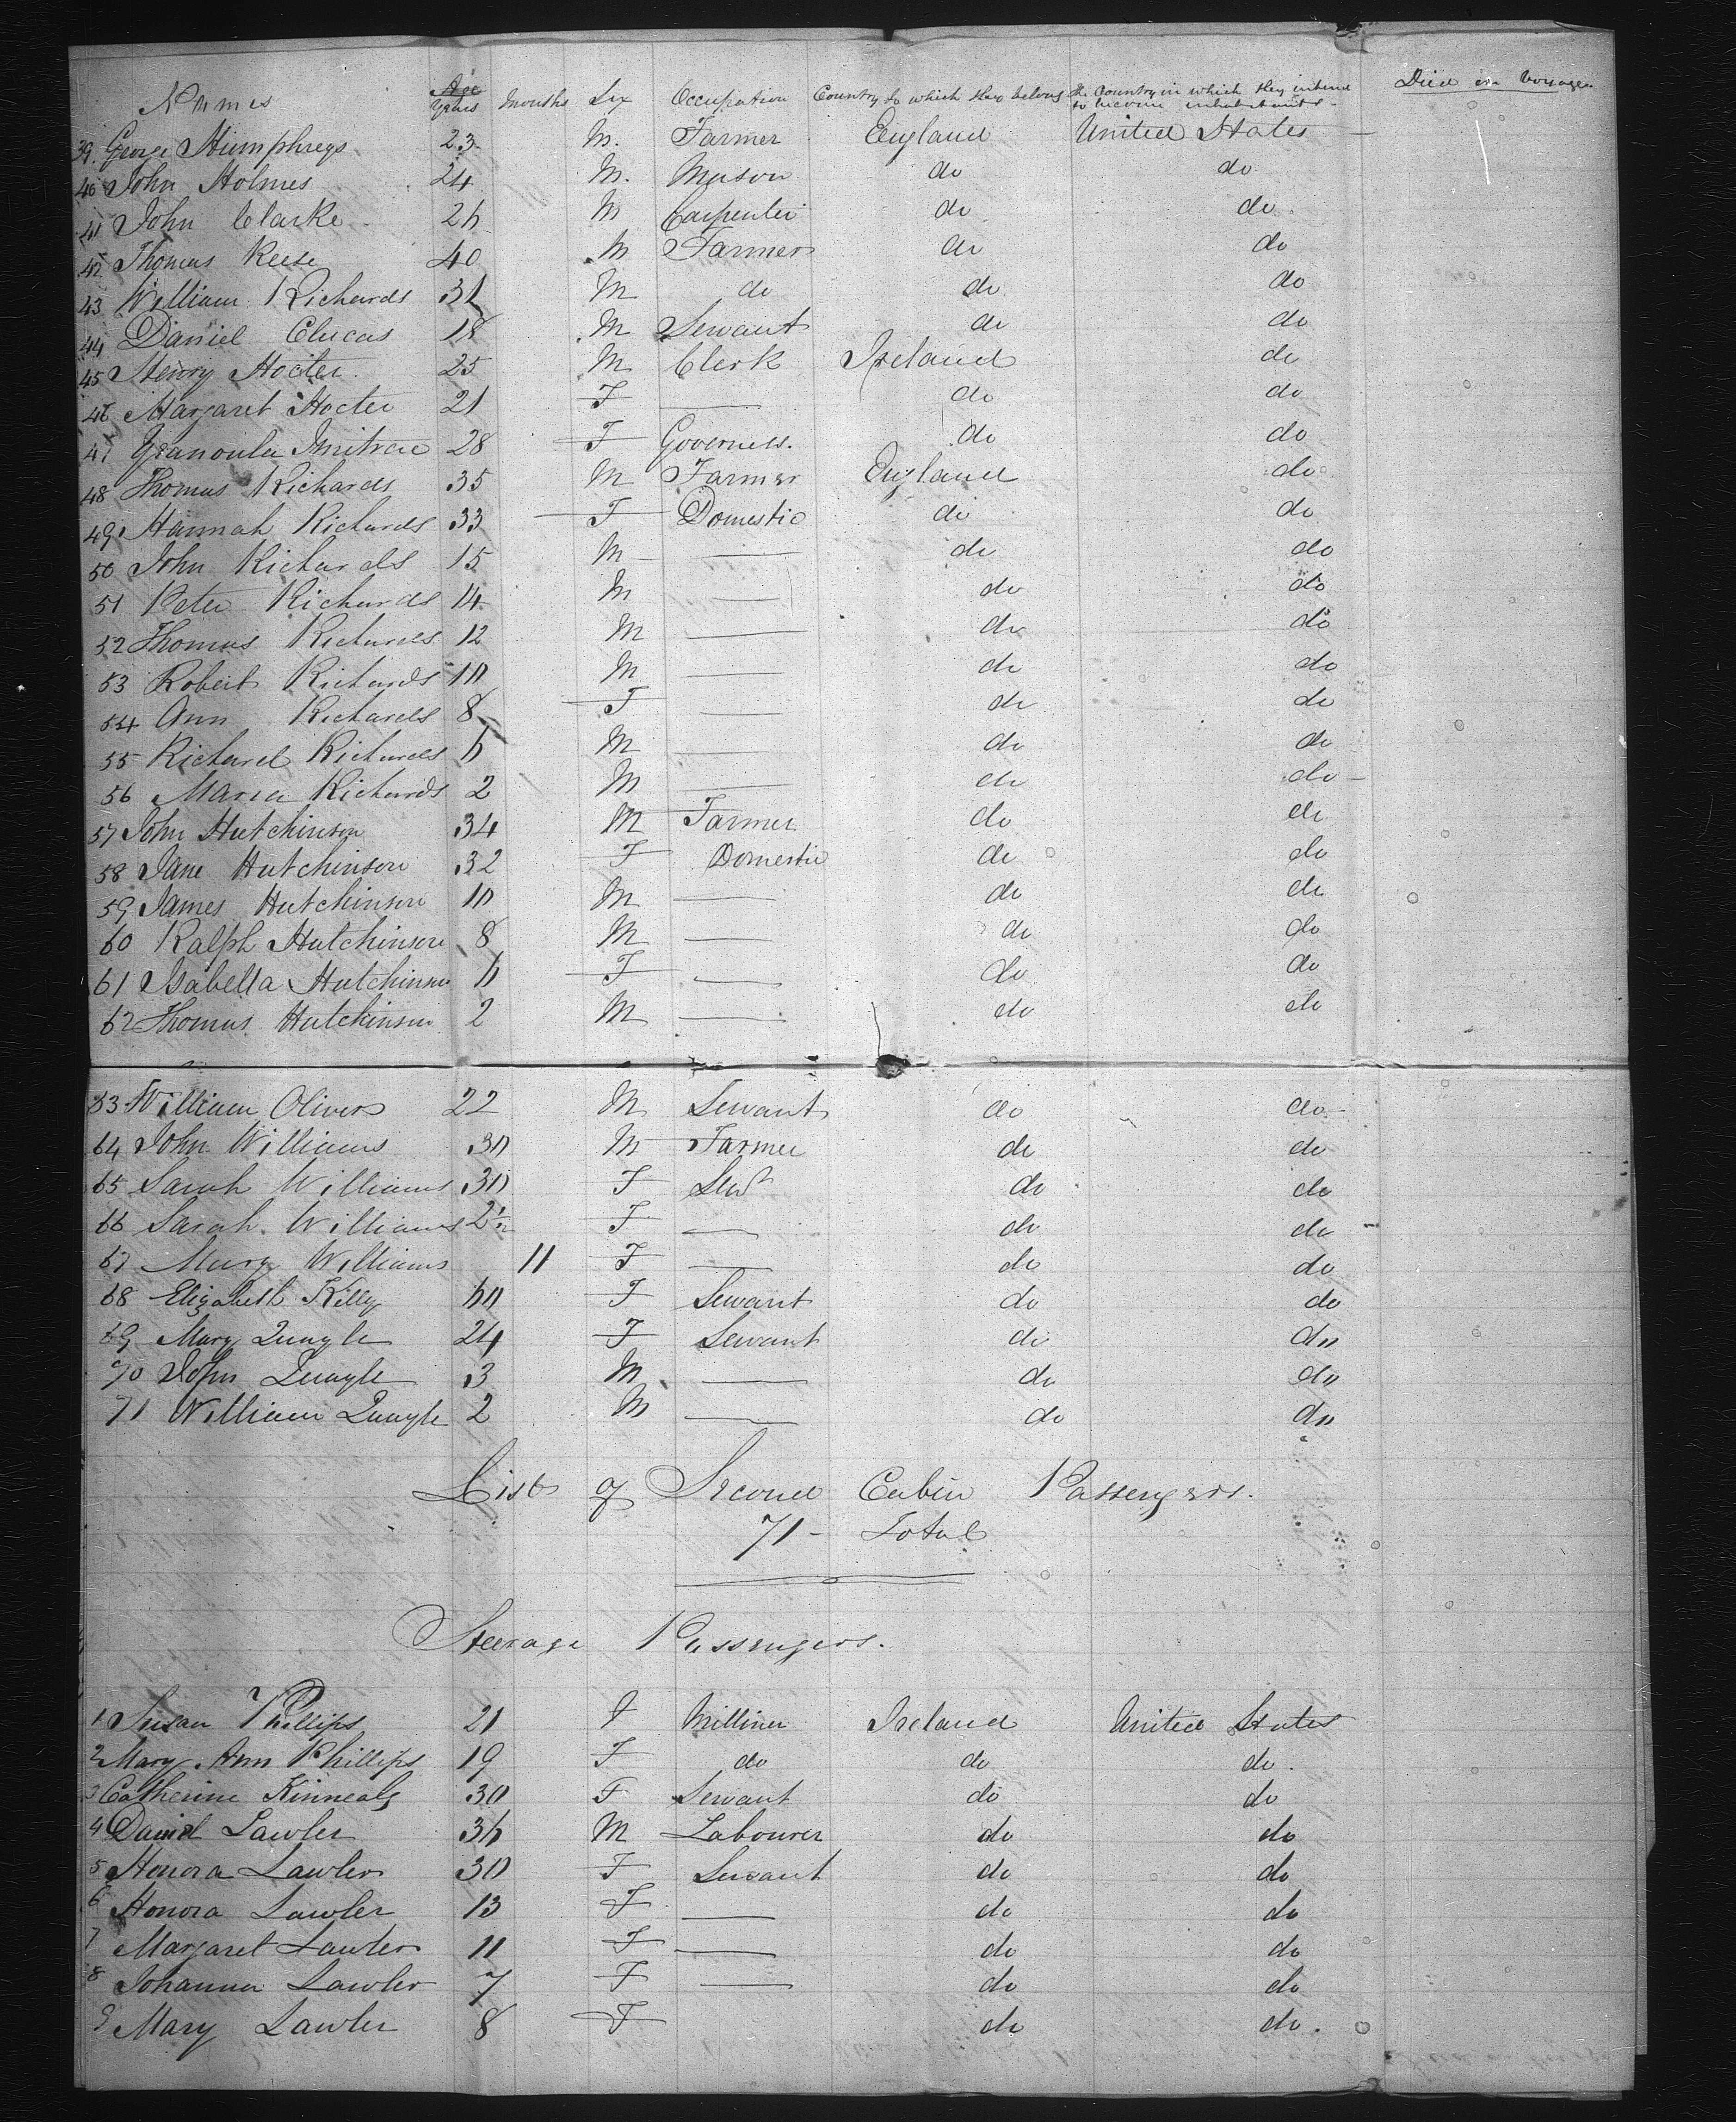 Names Age Years Months Sex Occupation Country to which they belong The Country in which they intend to become inhabitants Died on Voyage
39 George Humphreys 23 M. Farmer England United States
40 John Holmes 24 M. Mason do do
41 John Clarke 26 M Carpenter do do
42 Thomas Reese 40 M Farmer do do
43 William Richards 31 M do do do
44 Daniel Clucas 18 M Servant do do
45 Henry Hocter 25 M Clerk Ireland do
46 Margaret Hocter 21 F — do do
47 28 F Governess. do do
48 Thomas Richards 35 M Farmer England do
49 Hannah Richards 33 F Domestic do do
50 John Richards 15 M — do do
51 Peter Richards 14 M — do do
52 Thomas Richards 12 M — do do
53 Robert Richards 10 M — do do
54 Ann Richards 8 F — do do
55 Richard Richards 6 M — do do
56 Maria Richards 2 M — do do
57 John Hutchinson 34 M Farmer do do
58 Jane Hutchinson 32 F Domestic do do
59 James Hutchinson 10 M — do do
60 Ralph Hutchinson 8 M — do do
61 Isabella Hutchinson 6 F — do do
62 Thomas Hutchinson 2 M — do do
63 William Olivers 22 M Servant do do
64 John Williams 30 M Farmer do do
65 Sarah Williams 30 F Servt do do
66 Sarah Williams F — do do
67 Mary Williams 11 F — do do
68 Elizabeth Killy 60 F Servant do do
69 Mary Quayle 24 F Servant do do
70 John Quayle 3 M — do do
71 William Quayle 2 M — do do
List of Second Cabin Passengers.
71 - Total
Steerage Passengers.
1 Susan Phillips 21 F Milliner Ireland United States
2 Mary Ann Phillips 19 F do do do.
3 Catherine Kinnealy 30 F Servant do do
4 Daniel Lawler 36 M Labourer do do
5 Honora Lawler 30 F Servant do do
6 Honora Lawler 13 F — do do
7 Margaret Lawler 11 F — do do
8 Johanna Lawler 7 F — do do
9 Mary Lawler 8 F do do.